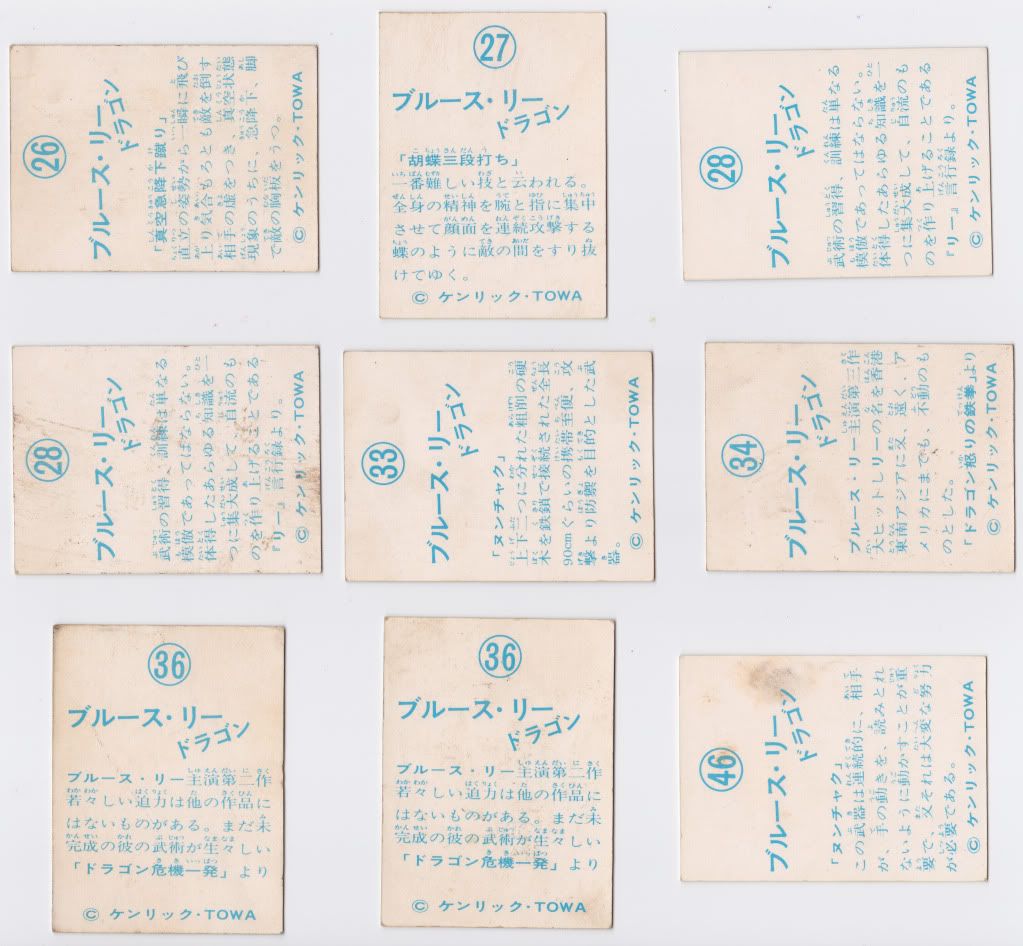 26
ブルース・リー
ドラゴン
「真空急降下蹴り」
直立の姿勢から一瞬に飛び
上り気合もろとも敵を倒す
相手の虚をつき、真空状態
現象のうちに、急降下、脚
で敵の胸板をうつ。
© ケンリック・TOWA
27
ブルース・リー
ドラゴン
「胡蝶三段打ち」
一番難しい技と云われる。
全身の精神を腕と指に集中
させて顔面を連続攻撃する
蝶のように敵の間をすり抜
けてゆく。
© ケンリック・TOWA
28
ブルース・リー
ドラゴン
武術の習得、訓練は単なる
模倣であってはならない。
体得したあらゆる知識を一
つに集大成して、自流のも
のを作り上げることである
『リー』言行録より。
© ケンリック・TOWA
28
ブルース・リー
ドラゴン
武術の習得、訓練は単なる
模倣であってはならない。
体得したあらゆる知識を一
つに集大成して、自流のも
のを作り上げることである
『リー』言行録より。
© ケンリック・TOWA
33
ブルース・リー
ドラゴン
「ヌンチャク」
上下二つに分れた粗削の硬
木を鉄鎖で接続された全長
90cmぐらいの携帯至便、攻
撃より防禦を目的とした武
器。
© ケンリック・TOWA
34
ブルース・リー
ドラゴン
ブルース・リー主演第三作
大ヒットリーの名を香港
東南アジアに又、遠く、ア
メリカにまでも、不動のも
のとした。
「ドラゴン怒りの鉄拳」より
© ケンリック・TOWA
36
ブルース・リー
ドラゴン
ブルース・リー主演第二作
若々しい迫力は他の作品に
はないものがある。まだ未
完成の彼の武術が生々しい
「ドラゴン危機一発」より
© ケンリック・TOWA
36
ブルース・リー
ドラゴン
ブルース・リー主演第二作
若々しい迫力は他の作品に
はないものがある。まだ未
完成の彼の武術が生々しい
「ドラゴン危機一発」より
© ケンリック・TOWA
46
ブルース・リー
ドラゴン
「ヌンチャク」
この武器は連続的に、相手
が、手の動きを、読みとれ
ないように動かすことが重
要で、又それは大変な努力
が必要である。
© ケンリック・TOWA